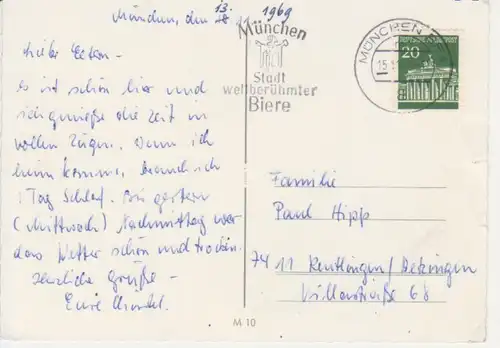 München, den 13. 1969
Liebe Eltern -
es ist schön hier und
ich genieße die Zeit in
vollen Zügen. Wenn ich
heim komme, brauch ich
1 Tag Schlaf. Bis gestern
(Mittwoch) Nachmittag war
das Wetter schön und trocken.
Herzliche Grüße -
Eure
München
Stadt
weltberühmter
Biere
MÜNCHEN
15.
DEUTSCHE BUNDESPOST
20
Familie
Paul Hipp
7411 Reutlingen/Betzingen
68
M 10